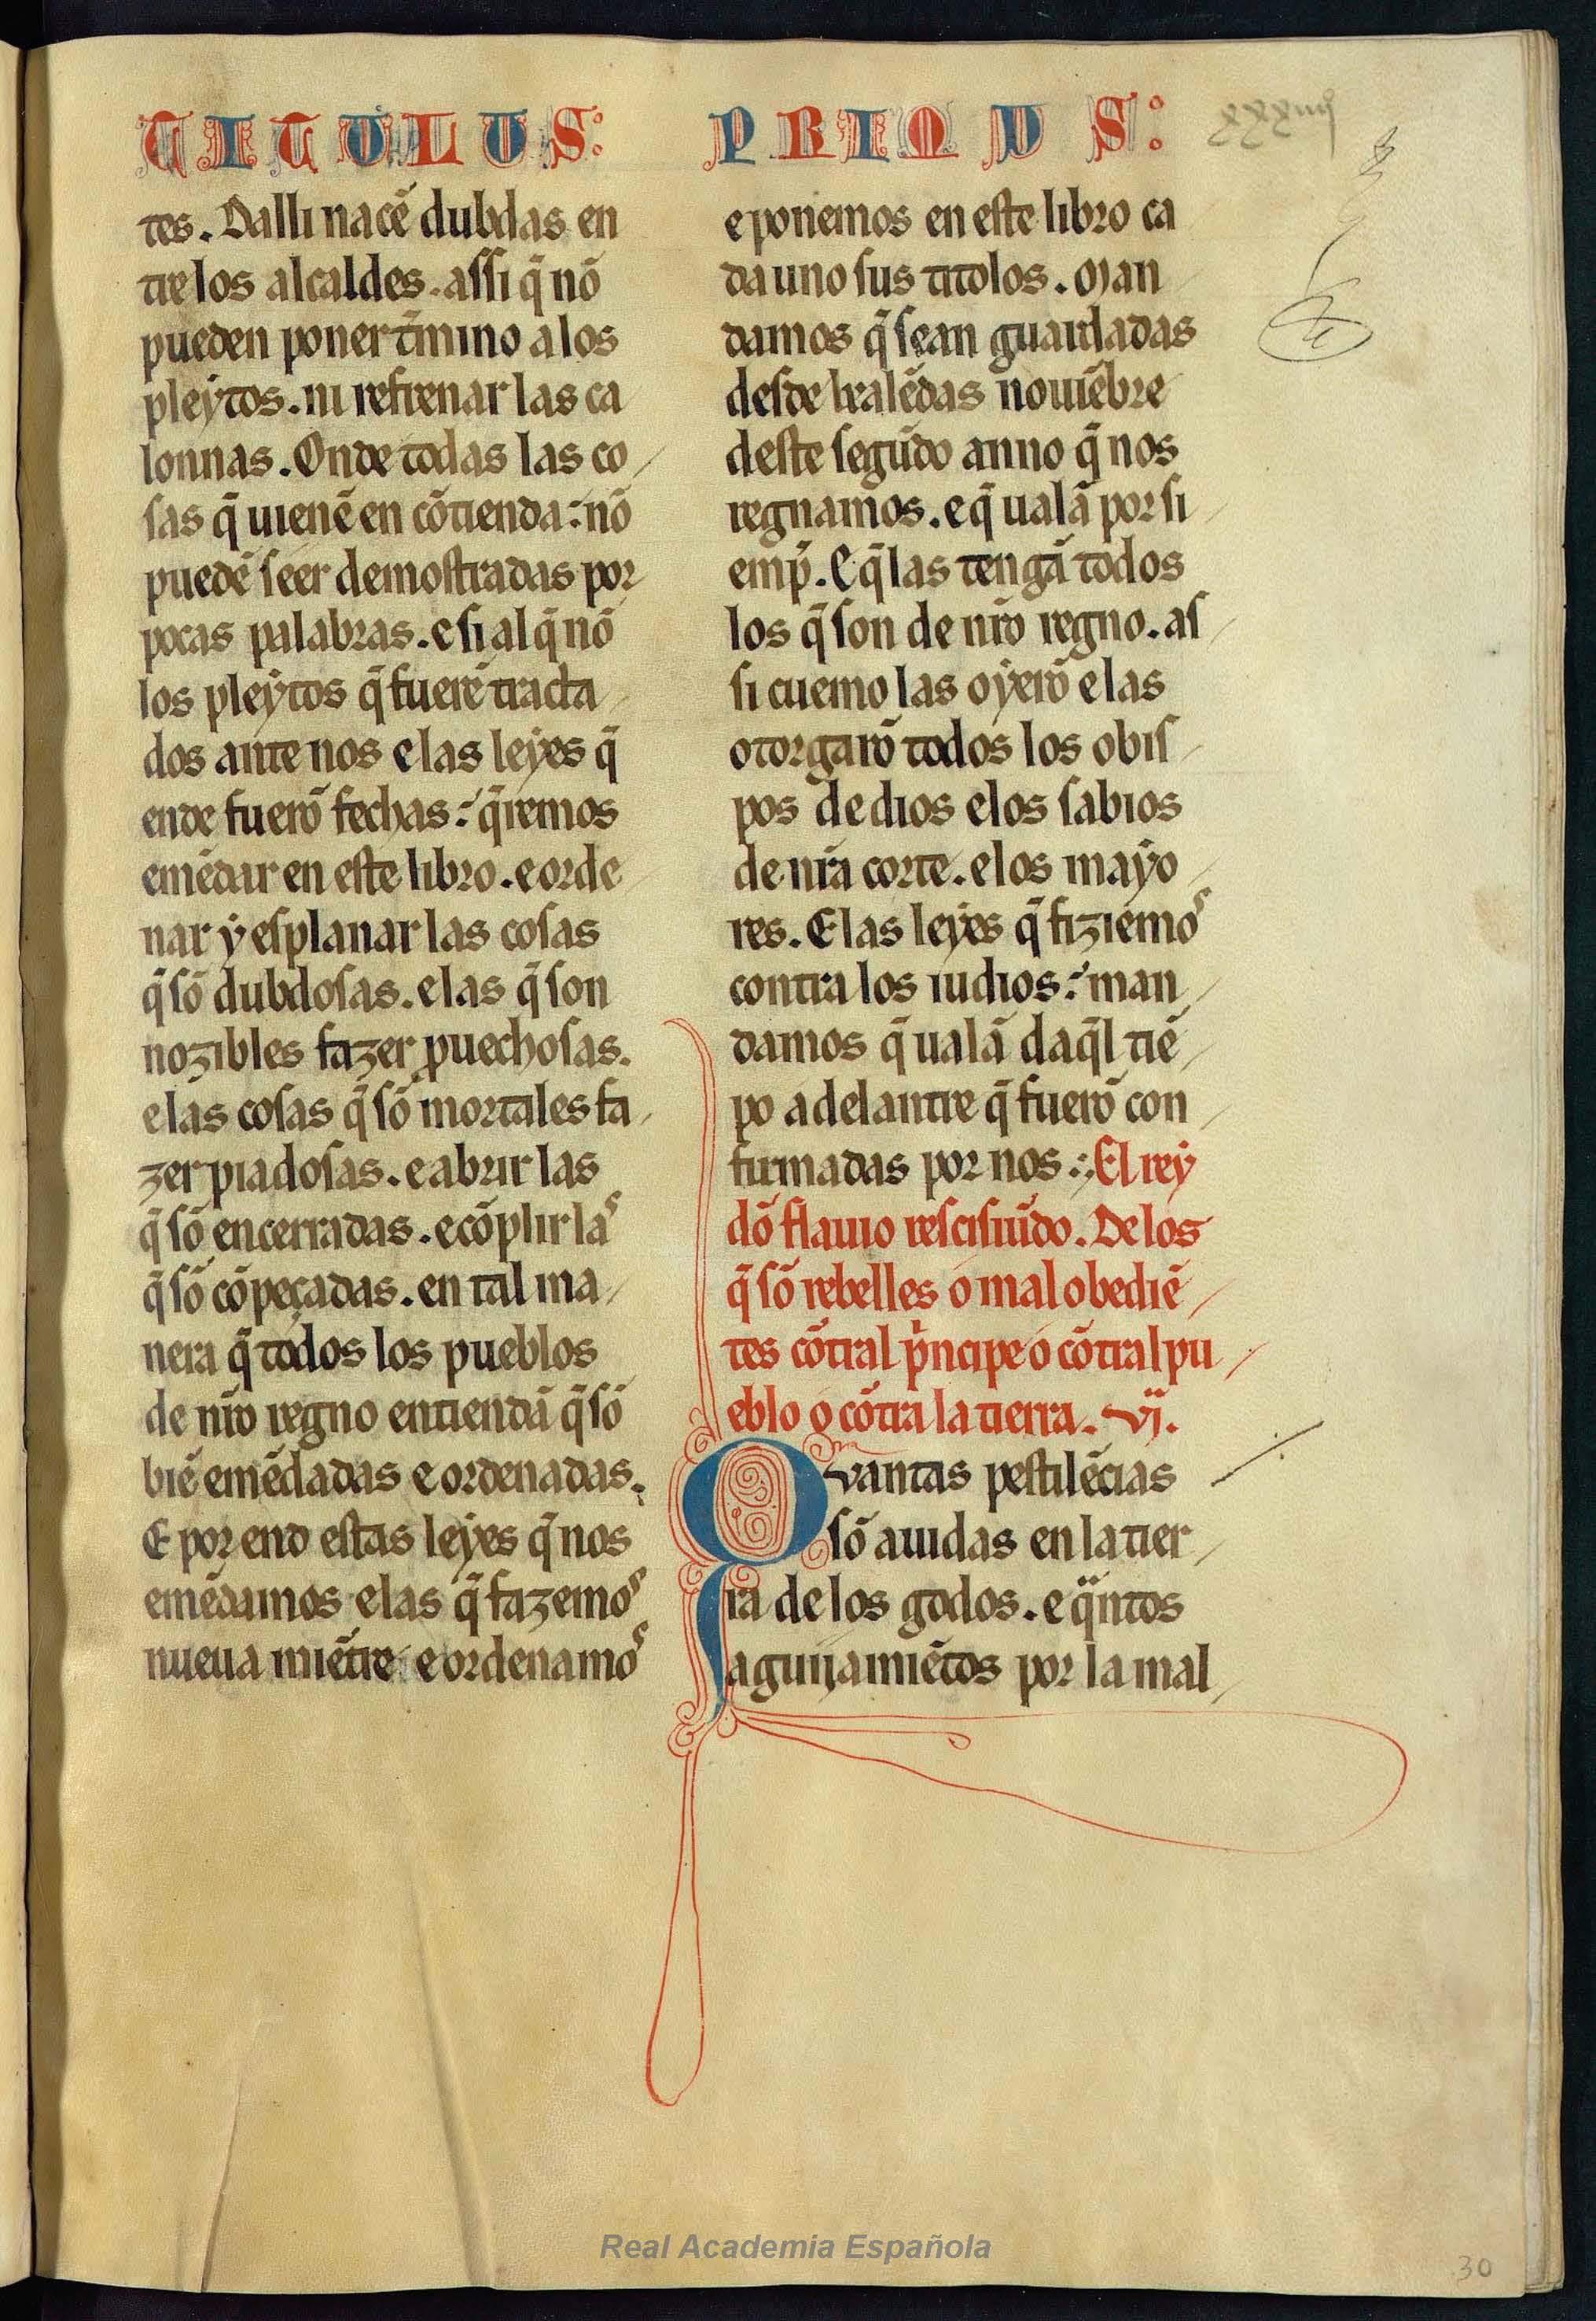 TITULUS: PRIMUS:
xxxiiij
tes. Dalli nacẽ dubdas en
tre los alcaldes. assi q̃ nõ
pueden poner t̃mino a los
pleẏtos. ni refrenar las ca
lonnas. Onde todas las co
sas q̃ uienẽ en cõtienda: nõ
puedẽ seer demostradas por
pocas palabras. e si al q̃ nõ
los pleẏtos q̃ fuerẽ tracta
dos ante nos e las leẏes q̃
ende fuerõ fechas: q̃remos
emẽdar en este libro. e orde
nar ẏ esplanar las cosas
q̃ sõ dubdosas. e las q̃ son
nozibles fazer ꝓuechosas.
e las cosas q̃ sõ mortales fa
zer piadosas. e abrir las
q̃ sõ encerradas. e cõplir las
q̃ sõ cõpeçadas. en tal ma
nera q̃ todos los pueblos
de nr̃o regno entiendã q̃ sõ
biẽ emẽdadas e ordenadas.
E por end estas leẏes q̃ nos
emẽdamos e las q̃ fazemos
nueua miẽtre e ordenamos
e ponemos en este libro ca
da uno sus titolos. Man
damos q̃ sean guardadas
desde kalẽdas nouiẽbre
deste segũdo anno q̃ nos
regnamos. e q̃ ualã por si
emp̃. E q̃ las tengã todos
los q̃ son de nr̃o regno. as
si cuemo las oẏerõ e las
otorgarõ todos los obis
pos de dios e los sabios
de nr̃a corte. e los maẏo
res. E las leẏes q̃ fiziemos
contra los iudios: man
damos q̃ ualã daq̃l tiẽ
po adelantre q̃ fuerõ con
firmadas por nos: El reẏ
dõ flauio rescisiũdo. De los
q̃ sõ rebelles o mal obediẽ
tes cõtral p̃ncipe o cõtral pu
eblo o cõtra la tierra. vj.
Quantas pestilẽcias
sõ auidas en la tier
ra de los godos. e q̃ntos
aguijamiẽtos por la mal
Real Academia Española
30